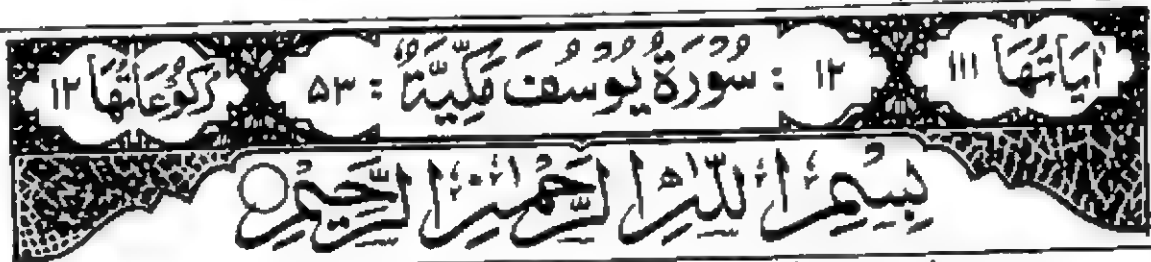 اٰيَاتُهَا ١١١ ١٢ : سُوْرَةُ يُوْسُفَ مَكِّيَّةٌ : ٥٣ رُكُوْعَاتُهَا ١٢
بِسْمِ اللّٰهِ الرَّحْمٰنِ الرَّحِيْمِ